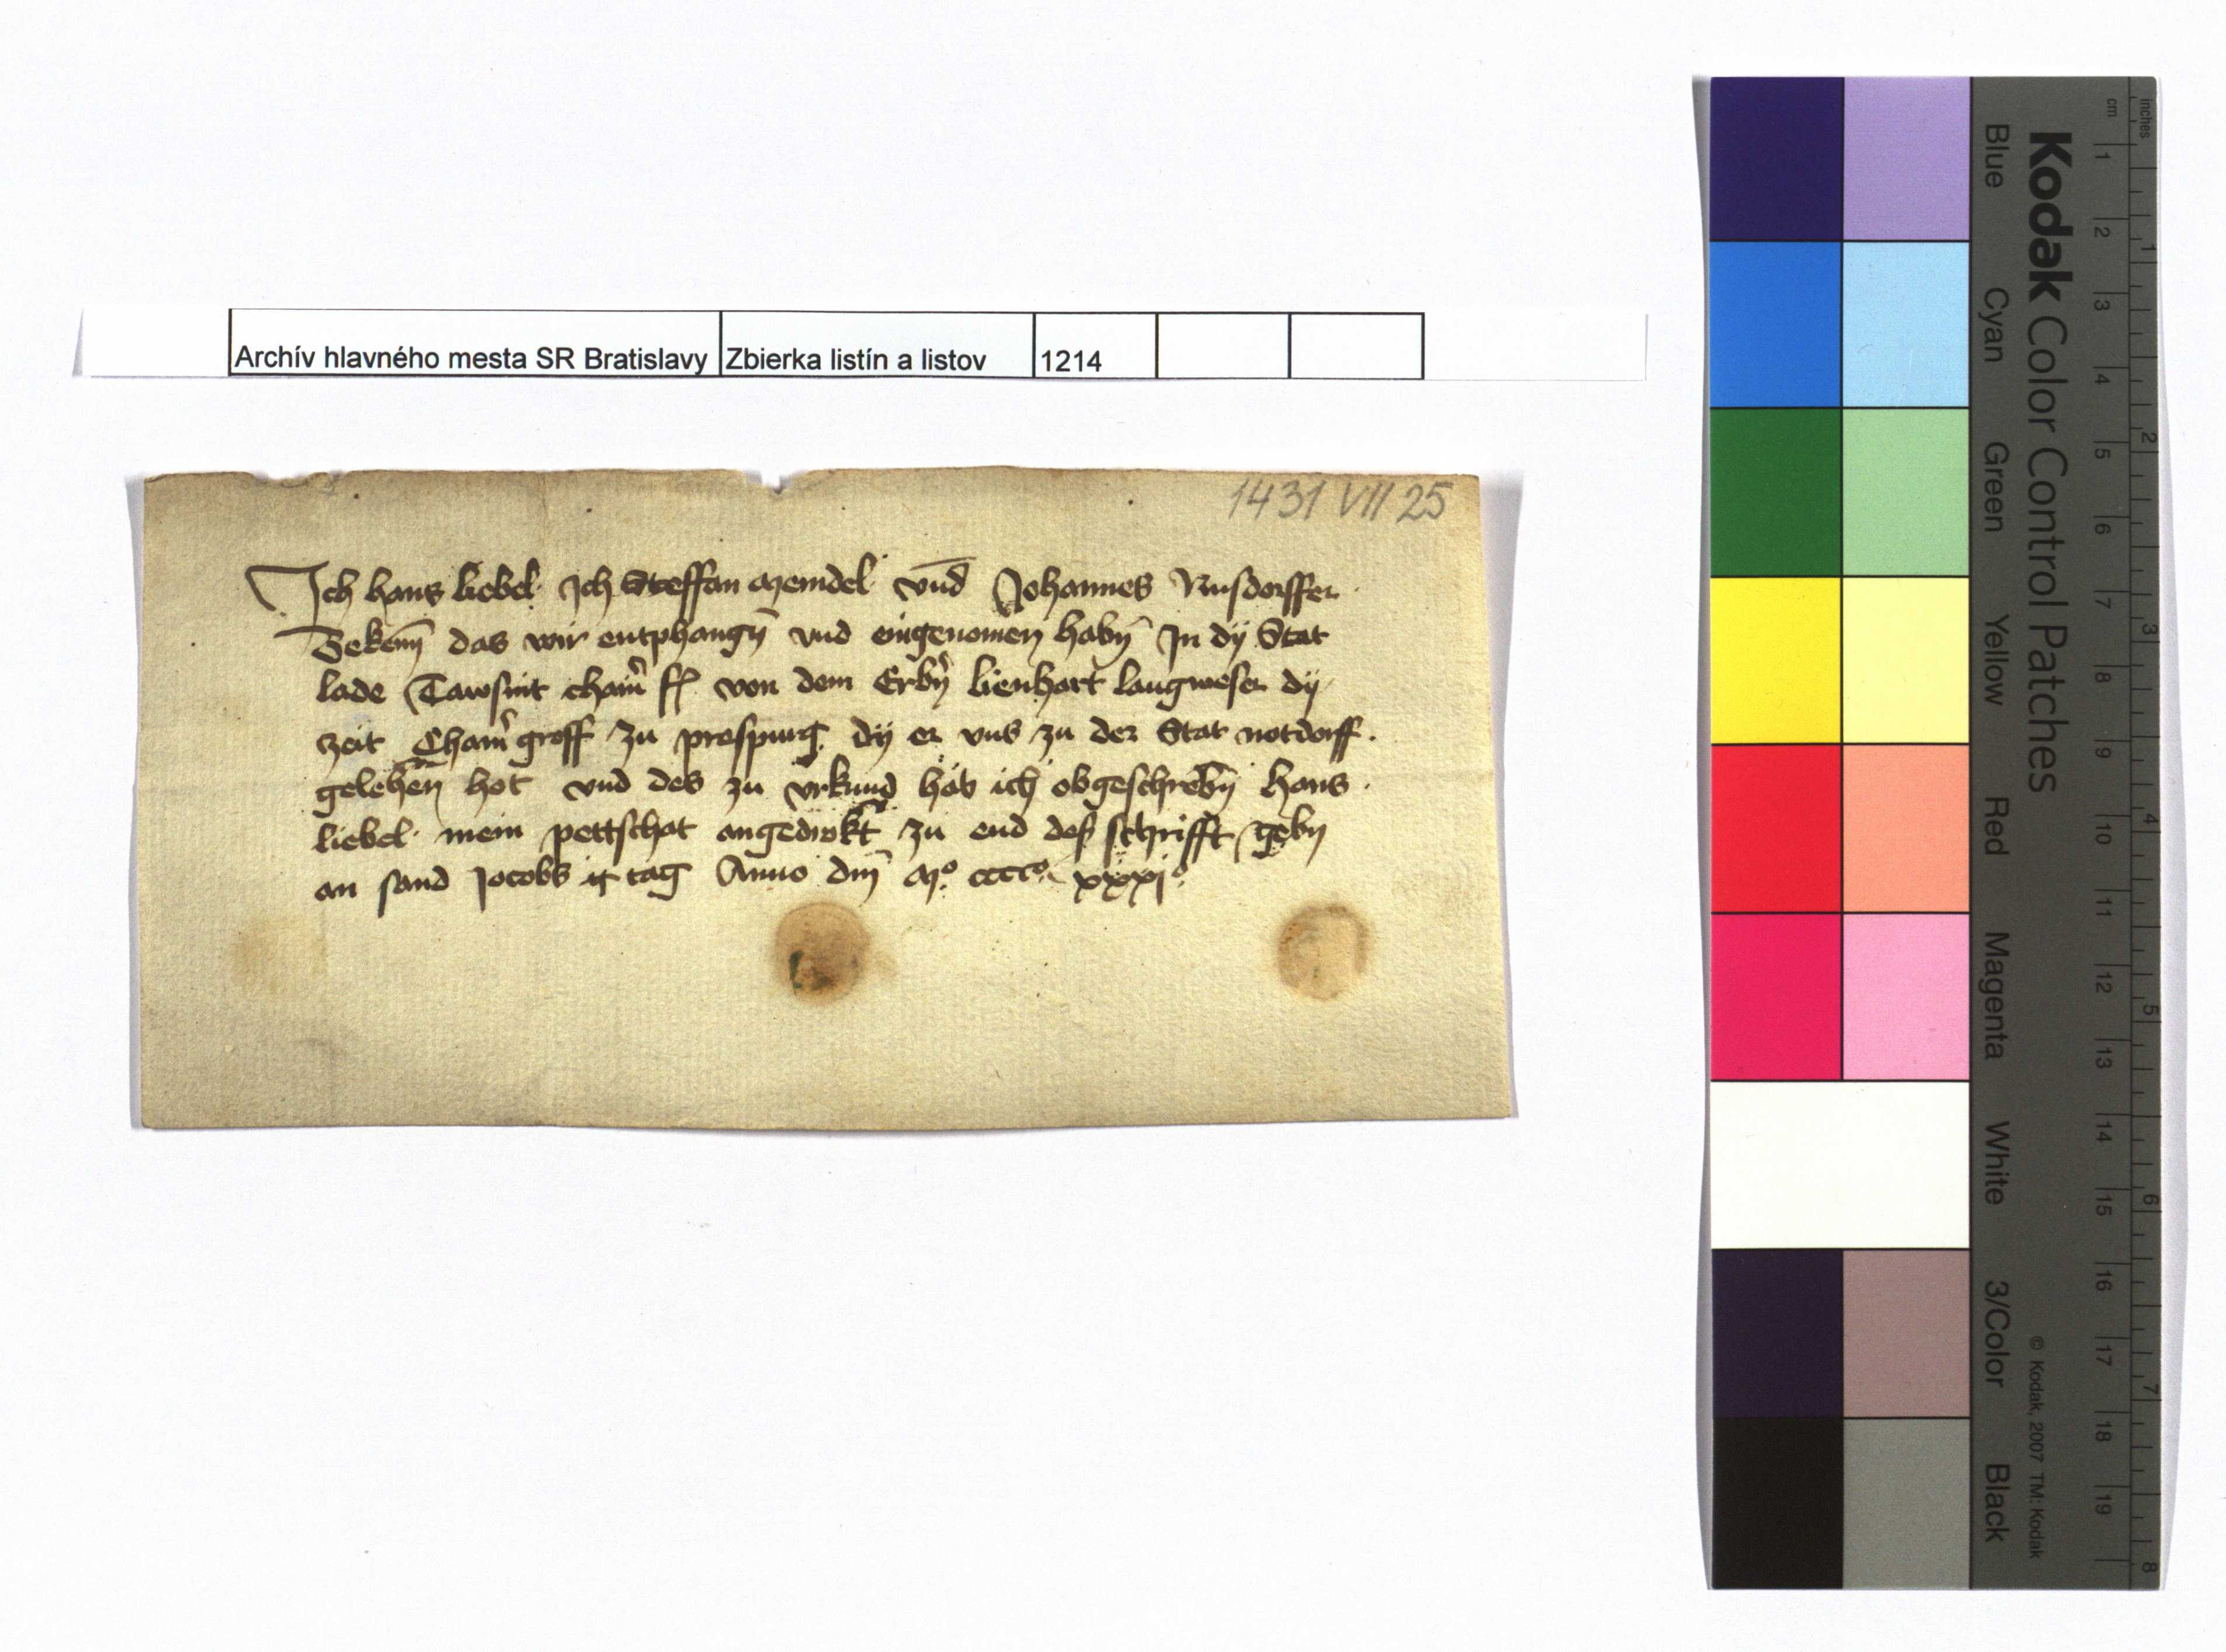 Archív hlavného mesta SR Bratislavy Zbierka listín a listov 1214
1431 VII 25
Ich hans liebel Ich Steffan meindel vnd Johannes Rusdorffer
Bekenn das wir entphangn vnd eingenomen habn In dÿ Stat
lade Tawsint cham̄ ff von dem Erbn lienhart langweser dÿ
zeit Cham̄ groff zu prespurg dÿ er vns zu der Stat notdorff.
gelehen hot vnd des zu vrkund hab ich obgeschrebn hans
liebel mein pettschat angedrokt zu end des schrifft gebn
an sand Jocobs tag Anno dm̄ mº ccccº xxxjº
Kodak Color Control Patches
Blue Cyan Green Yellow Red Magenta White 3/Color Black
© Kodak, 2007 TM: Kodak
cm 1 2 3 4 5 6 7 8 9 10 11 12 13 14 15 16 17 18 19
inches 1 2 3 4 5 6 7 8